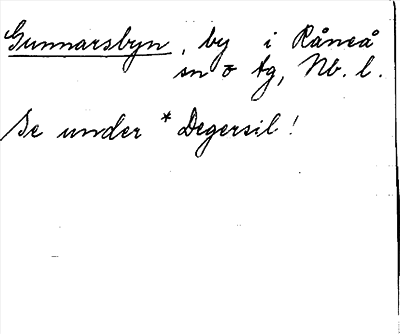 Gunnarsbyn, by i Råneå
sn o tg, Nb. l.
Se under *Degersil!